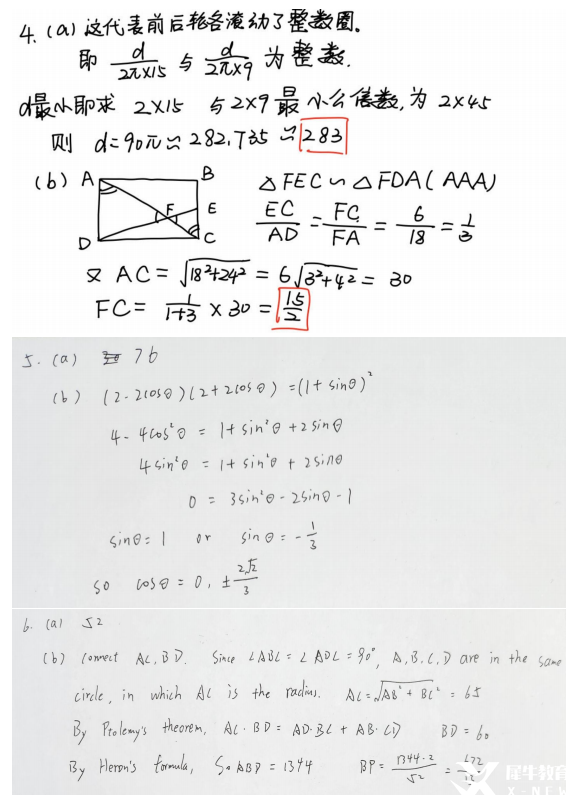 4. (a) 这代表前后轮各滚动了整数圈。
即 d/(2π×15) 与 d/(2π×9) 为整数.
d最小即求 2×15 与 2×9 最小公倍数, 为 2×45
则 d=90π≈282.735≈283
(b) A B △FEC∽△FDA(AAA)
F E EC/AD = FC/FA = 6/18 = 1/3
D C
又 AC = √(18²+24²) = 6√(3²+4²) = 30
FC = 1/(1+3) × 30 = 15/2
5. (a) 76
(b) (2-2cosθ)(2+2cosθ) = (1+sinθ)²
4-4cos²θ = 1+sin²θ+2sinθ
4sin²θ = 1+sin²θ+2sinθ
0 = 3sin²θ-2sinθ-1
sinθ=1 or sinθ=-1/3
so cosθ=0, ±2√2/3
6. (a) 52
(b) Connect AC, BD. Since ∠ABC=∠ADC=90°, A,B,C,D are in the same
circle, in which AC is the radius. AC=√(AB²+BC²) = 65
By Ptolemy's theorem, AC·BD = AD·BC + AB·CD BD=60
By Heron's formula, S△ABD=1344 BP = 1344·2/52 = 672/
犀牛教育
X-NEW